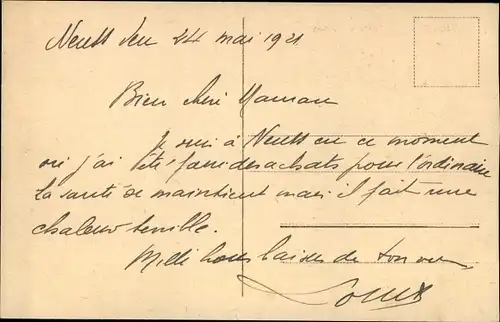 Neuss den 24 mai 1921
Bien chère Maman
Je suis à Neuss en ce moment
où j'ai été faire des achats pour l'ordinaire
la santé se maintient mais il fait une
chaleur terrible.
Mille bons baisers de ton
Louis